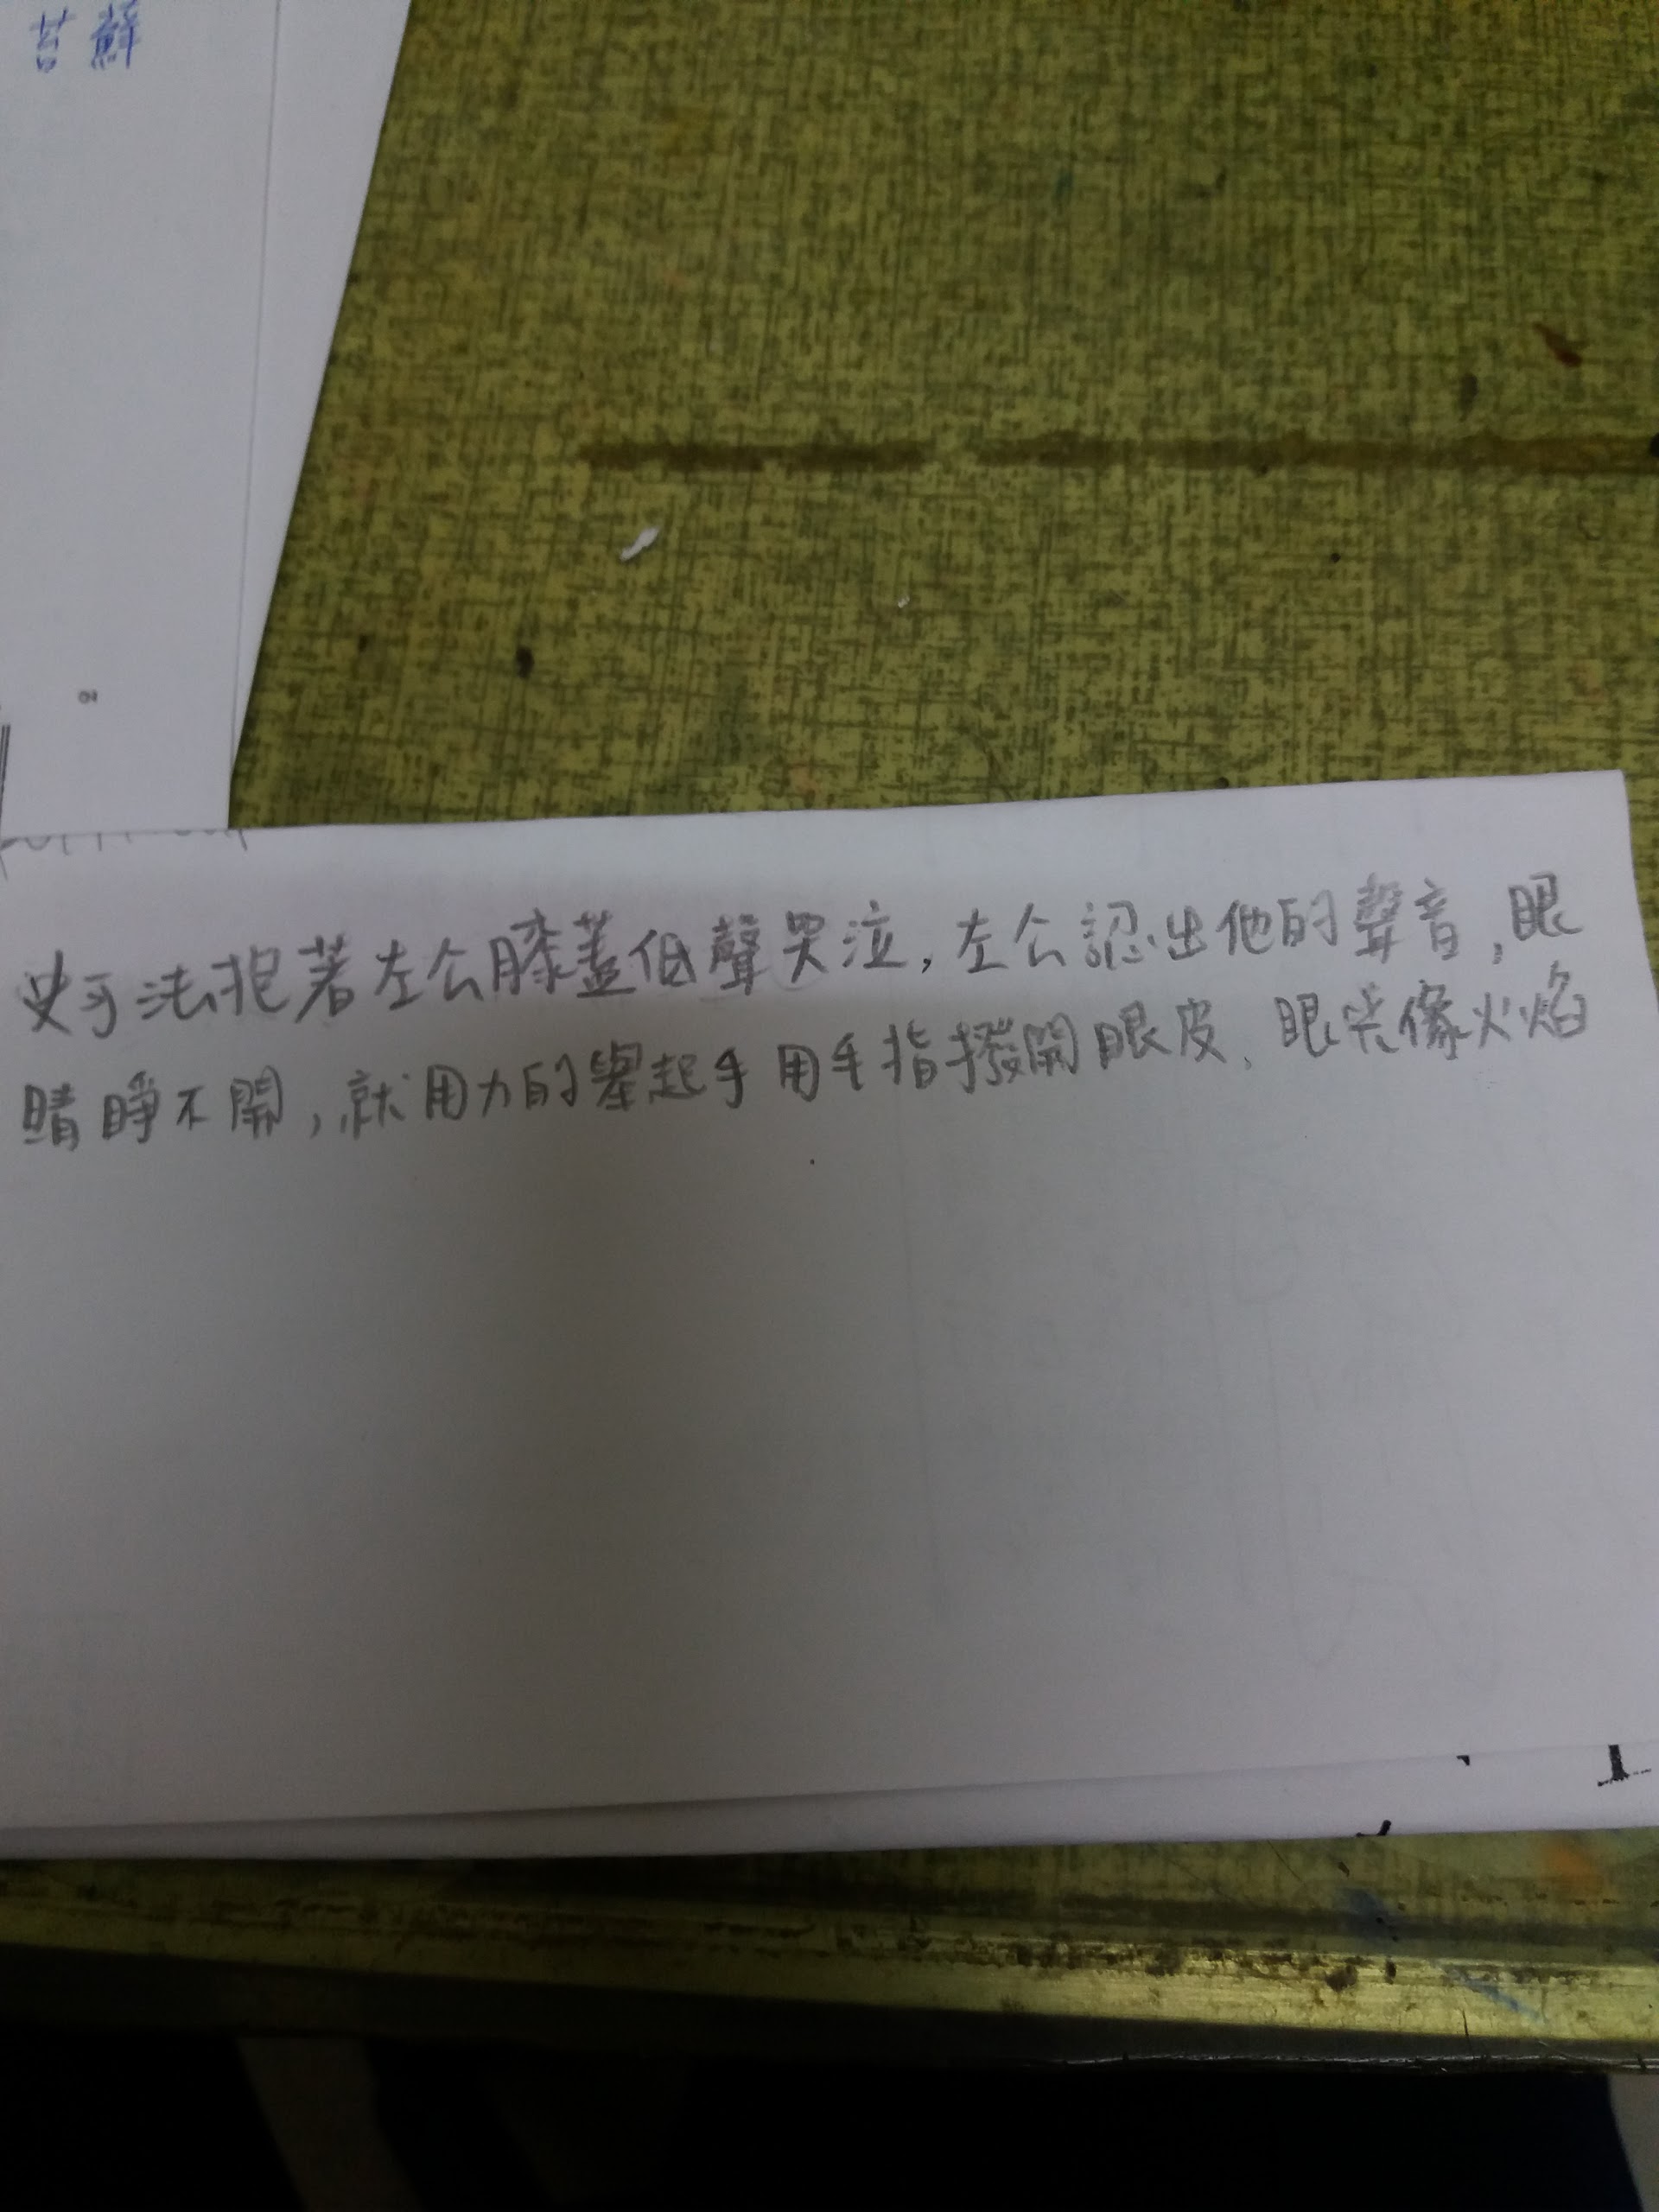 苔蘚
6
史可法抱著左公膝蓋低聲哭泣,左公認出他的聲音,眼
睛睜不開,就用力的舉起手用手指撥開眼皮、眼光像火焰